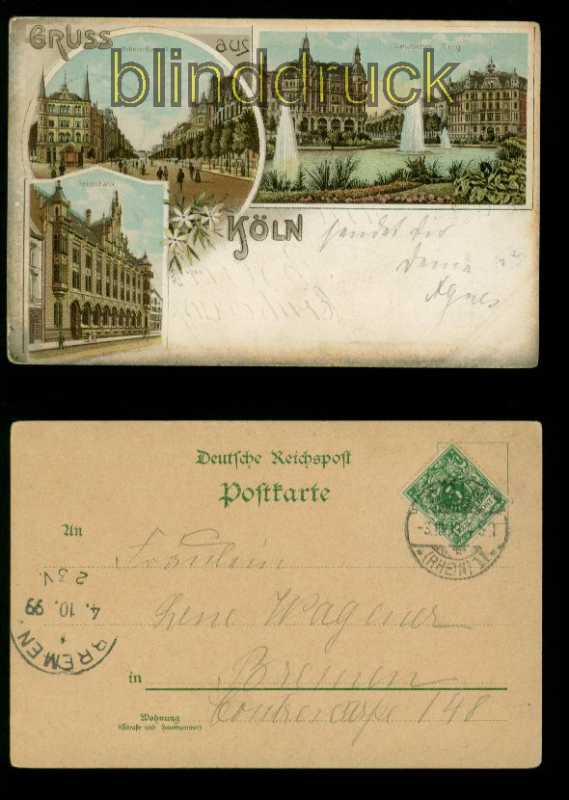 GRUSS aus
Deutscher Ring
Reichsbank
KÖLN
blinddruck
sendet dir
Deine
Agnes
Deutsche Reichspost
Postkarte
An
Fräulein
Lene Wagener
in Bremen
Wohnung
(Straße und Hausnummer)
148
(RHEIN)
BREMEN
4. 10. 99
2 3 V.